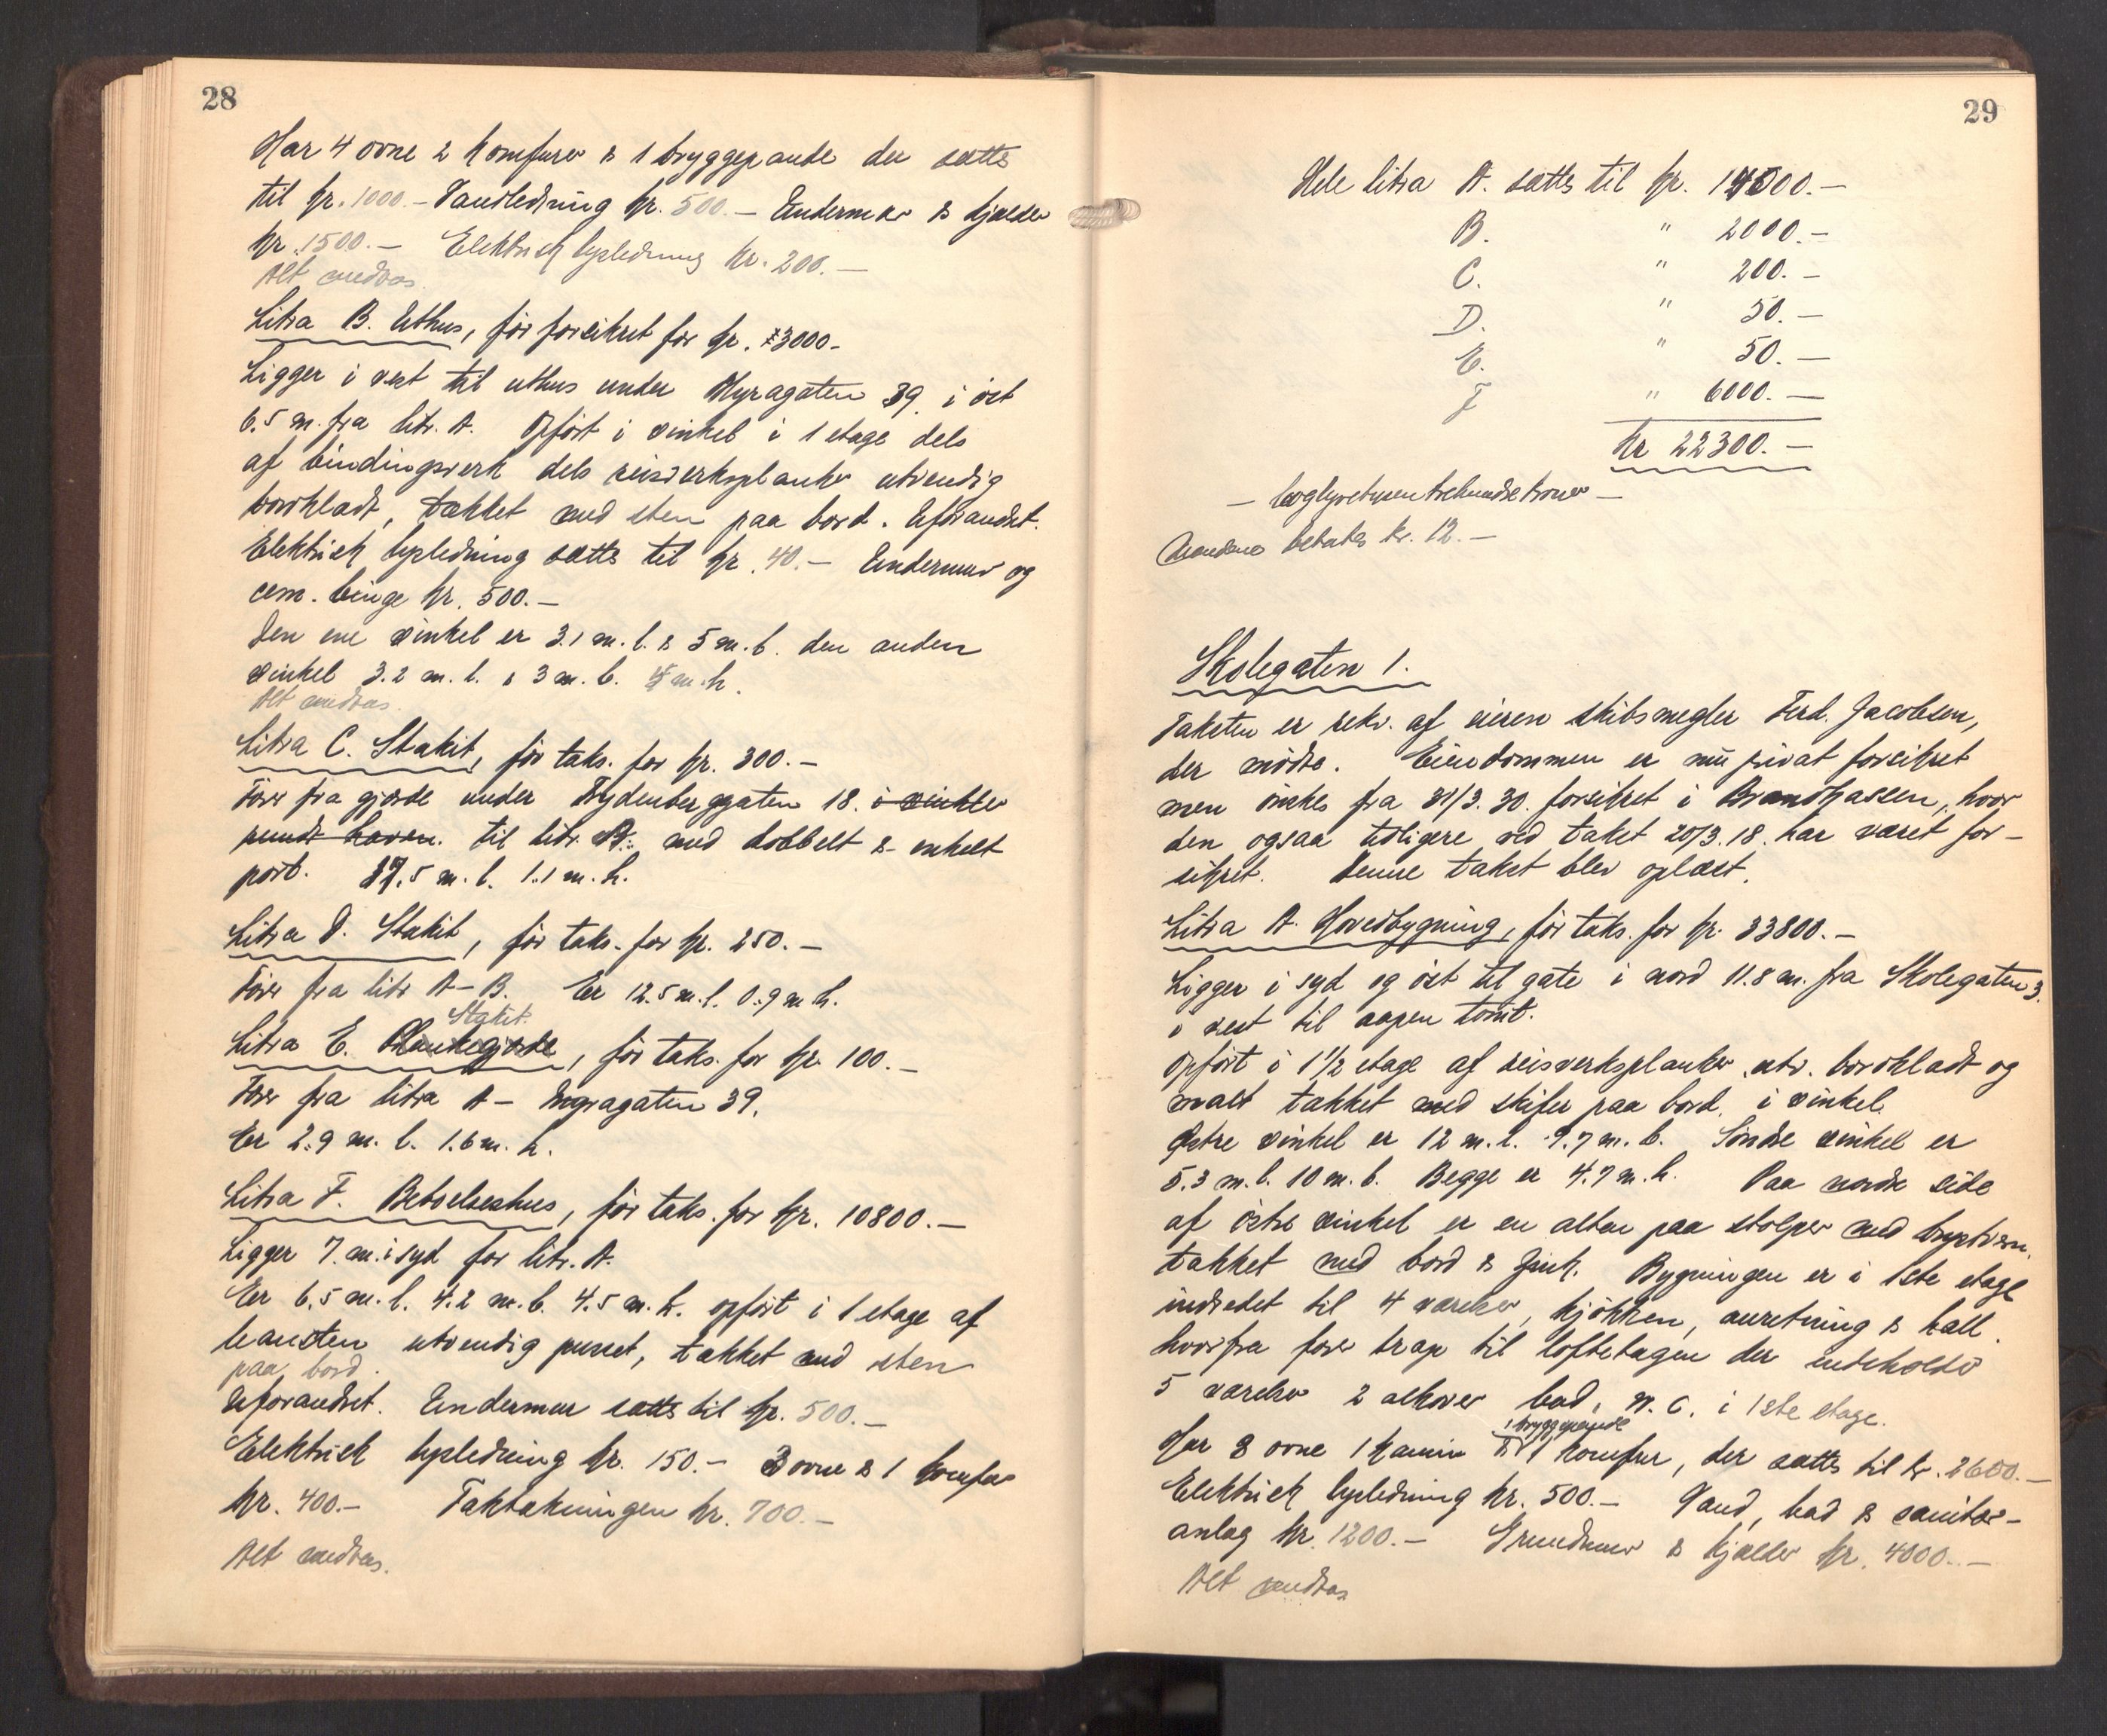 28
Har 4 ovne 2 komfurer & 1 bryggepande der sættes
til kr. 1000.- Vandledning kr. 500.- Undermur & kjælder
kr. 1500.- Elektrisk lysledning kr. 200.-
Alt medtas.
Litra B. Uthus, før forsikret for kr. 3000.-
Ligger i vest til uthus under Myragaten 39. i øst
6.5 m. fra litr. A. Opført i vinkel i 1 etage dels
af bindingsverk dels reisverksplanker utvendig
bordklædt, tækket med sten paa bord. Uforandret.
Elektrisk lysledning sættes til kr. 40.- Undermur og
cem. binge kr. 500.-
Den ene vinkel er 3.1 m. l. & 5 m. b. den anden
vinkel 3.2 m. l. & 3 m. b. 4 m. h.
Alt medtas.
Litra C. Stakit, før taks. for kr. 300.-
Fører fra gjærde under Frydenberggaten 18. i vinkler
rundt haven. til litr. A. med dobbelt & enkelt
port. 37.5 m. l. 1.1 m. h.
Litra D. Stakit, før taks. for kr. 250.-
Fører fra litr A-B. Er 12.5 m. l. 0.9 m h.
Stakit.
Litra E. Plankegjærde, før taks. for kr. 100.-
Fører fra litra A - Myragaten 39.
Er 2.9 m. l. 1.6 m. h.
Litra F. Beboelseshus, før taks. for kr. 10800.-
Ligger 7. m. i syd for litr. A.
Er 6.5 m. l. 4.2 m. b. 4.5 m. h. opført i 1 etage af
utvendig pusset, tækket med sten
paa bord.
Uforandret. Undermur sættes til kr. 500.-
Elektrisk lysledning kr. 150.- 3 ovne & 1 komfur
kr. 400.- Taktækningen kr. 700.-
Alt medtas.
29
Hele litra A. sættes til kr. 14000.-
B. " 2000.-
C. " 200.-
D. " 50.-
E. " 50.-
F " 6000.-
kr 22300.-
- togtyvetusentrehundrekroner -
Mændene betales kr. 12.-
Skolegaten 1.
Taksten er rekv. af eieren skibsmegler Ferd. Jacobsen,
der mødte. Eiendommen er nu privat forsikret
men ønskes fra 31/3. 30. forsikret i Brandkassen, hvor
den ogsaa tidligere ved takst 20/3. 18. har været for-
sikret. Denne takst blev oplæst.
Litra A. Hovedbygning, før taks. for kr. 33800.-
Ligger i syd og øst til gate i nord 11.8 m. fra Skolegaten 3.
i vest til aapen tomt.
Opført i 1 1/2 etage af reisverksplanker utv. bordklædt og
malt tækket med skifer paa bord. i vinkel.
Østre vinkel er 12 m. l. 9.7 m. b. Søndre vinkel er
5.3 m. l. 10 m. b. Begge er 4.7 m. h. Paa nordre side
af østre vinkel er en altan paa stolper med brystvern.
tækket med bord & zink. Bygningen er i 1ste etage
indredet til 4 værelser, kjøkken, anretning & hall.
hvorfra fører trap til loftetagen der indeholder
5 værelser 2 alkover bad, W. C. i 1ste etage.
1 bryggepande
Har 8 ovne 1 kamin & 1 komfur, der sættes til kr. 2600.-
Elektrisk lysledning kr. 500.- Vand, bad & sanitær-
anlæg kr. 1200.- Grundmur & kjælder kr. 4000.-
Alt medtas